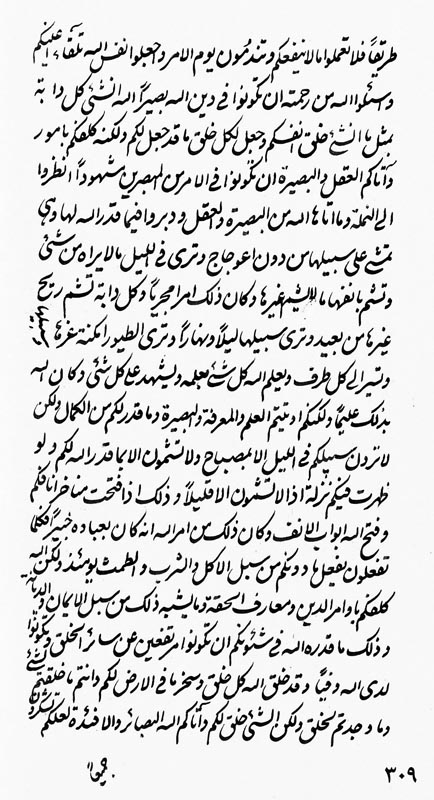 طريقاً فلا تعملوا ما لا ينفعكم وتندمون يوم الامر واجعلوا انفس الله تلقاء اعينكم
وسئلوا الله من رحمته ان تكونوا في دين الله بصيراً الله انشئ كل دابة
بمثل ما انشئ خلق انفسكم وجعل لكل خلق ما قد جعل لكم ولكنه كلفكم بامور
وآتاكم العقل والبصيرة ان تكونوا في الامر من المبصرين مشهوداً انظروا
الى النملة وما اتاها الله من البصيرة والعقل ودبروا فيما قدر الله لها وهي
تمشي على سبيلها من دون اعوجاج وترى في الليل ما لا يراه من شئ
وتشم بانفها ما لا يشم غيرها وكان ذلك امرا مجرياً وكل دابة تشم ريح
غيرها من بعيد وترى سبيلها ليلاً ونهاراً وترى الطيور امكنة غيرها
وتسير الى كل طرف ويعلم الله كل شئ بعلمه ويشهد على كل شئ وكان الله
بذلك عليماً ولكنكم اوتيتم العلم والمعرفة والبصيرة وما قدر لكم من الكمال ولكن
لا ترون سبيلكم في الليل الا بمصباح ولا تشمون الا بما قدر الله لكم ولو
ظهرت فيكم نزلة اذا لا تشمون الا قليلاً وذلك اذا فتحت مناخر انافكم
وفتح الله ابواب الانف وكان ذلك من امر الله انه كان بعباده خبيراً فكلما
تفعلون يفعل ما دونكم من سبل الاكل والشرب والطمث يومئذ ولكن الله
كلفكم باوامر الدين ومعارف الحقة وما يشبه ذلك من سبل الايمان والديانة
وذلك ما قدره الله في شئونكم ان تكونوا مرتفعين عن سائر الخلق وتكونوا
لدى الله وفياً وقد خلق الله كل خلق وسخر ما في الارض لكم وانتم ما خلقتم
وما وجدتم لخلق ولكن الشئ خلق لكم وآتاكم الله البصائر والافئدة لعلكم تشكرون
٣٠٩